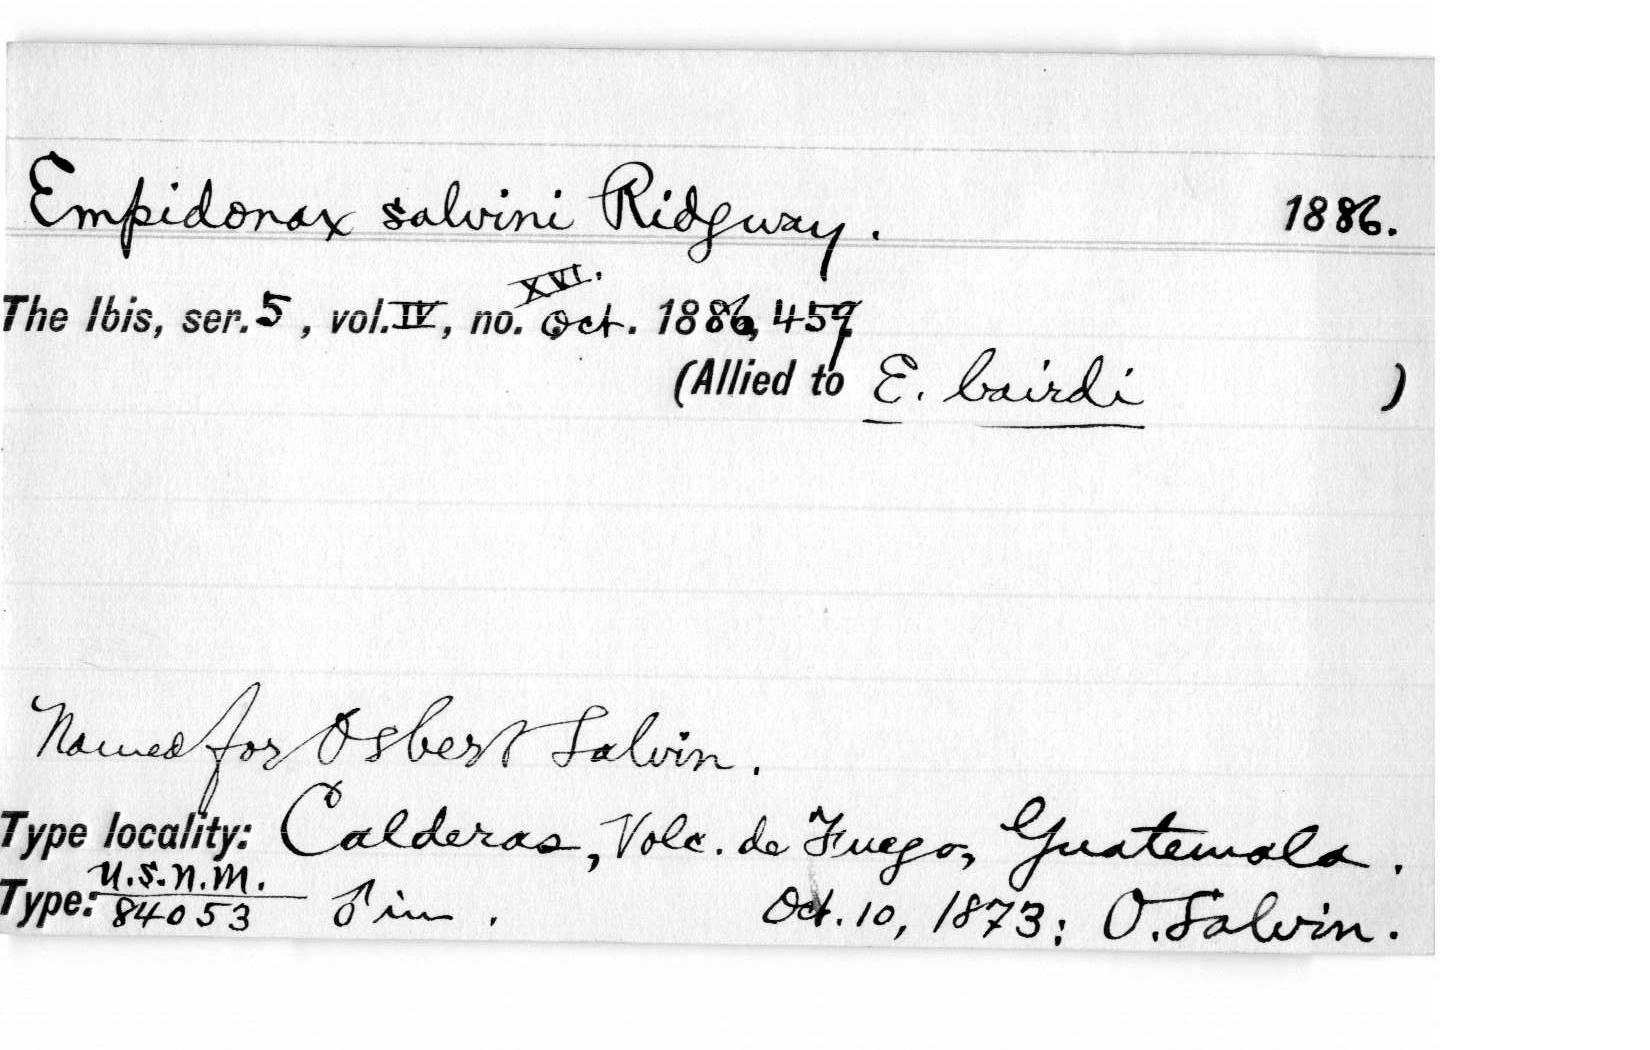 Empidonax salvini Ridgway. 1886.
XVI.
The Ibis, ser. 5, vol. IV, no. Oct. 1886, 459
(Allied to E. bairdi )
Named for Osbert Salvin.
Type locality: Calderas, Volc. de Fuego, Guatemala.
U.S.N.M.
Type: 84053 ♂ im. Oct. 10, 1873; O. Salvin.